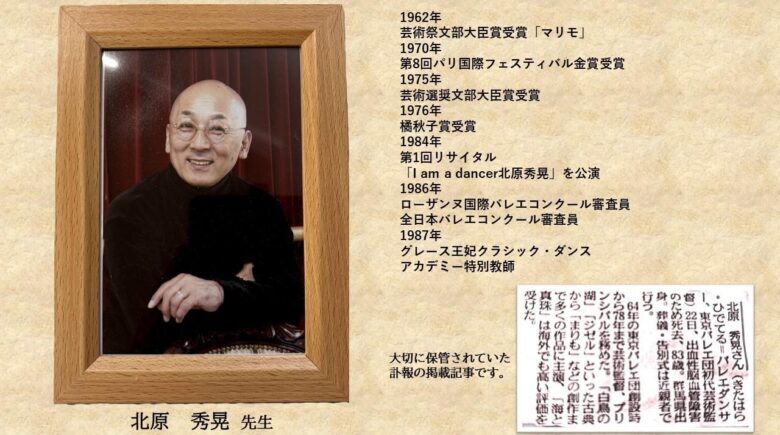 1962年
芸術祭文部大臣賞受賞「マリモ」
1970年
第8回パリ国際フェスティバル金賞受賞
1975年
芸術選奨文部大臣賞受賞
1976年
橘秋子賞受賞
1984年
第1回リサイタル
「I am a dancer北原秀晃」を公演
1986年
ローザンヌ国際バレエコンクール審査員
全日本バレエコンクール審査員
1987年
グレース王妃クラシック・ダンス
アカデミー特別教師
北原 秀晃さん（きたはら
・ひでてる＝バレエダンサ
ー、東京バレエ団初代芸術監
督）22日、出血性脳血管障害
のため死去、83歳。群馬県出
身。葬儀・告別式は近親者で
行う。
64年の東京バレエ団創設時
から78年まで芸術監督、プリ
ンシパルを務めた。「白鳥の
湖」「ジゼル」といった古典
から「まりも」などの創作ま
で多くの作品に主演、「海と
真珠」は海外でも高い評価を
受けた。
大切に保管されていた
訃報の掲載記事です。
北原 秀晃 先生